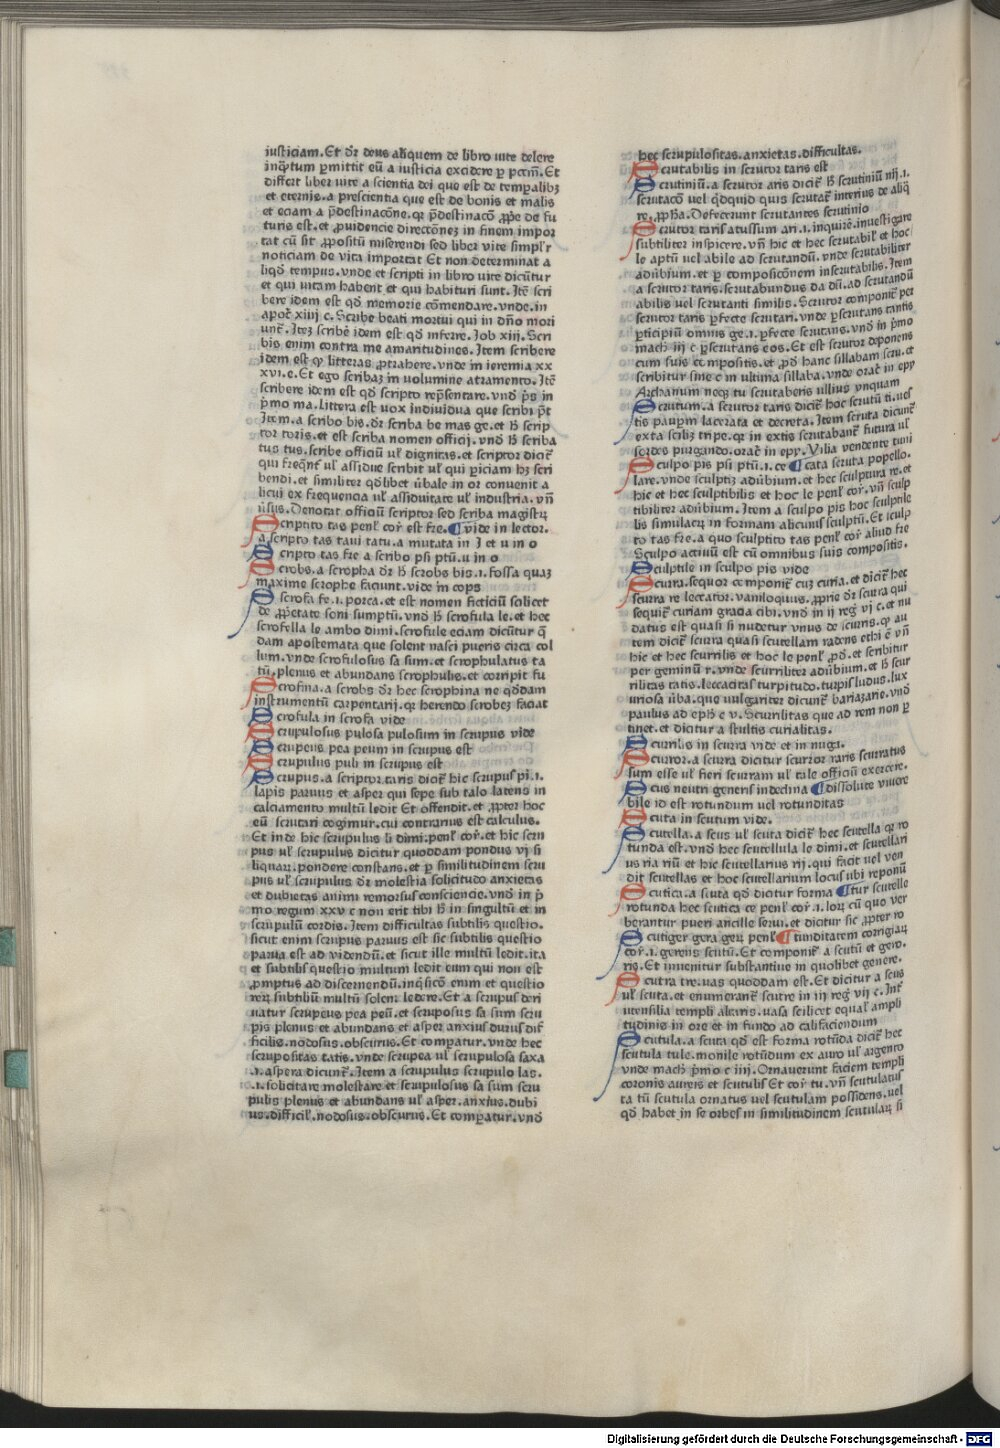 iusticiam. Et dr̄ deus aliquem de libro uite delere
inq̄tum ꝑmittit eū a iusticia excidere ꝑ pc̄m̄. Et
differt liber uite a scientia dei que est de tempalibꝫ
et eternis. a prescientia que est de bonis et malis
et eciam a p̄destinacōne. qꝛ p̄destinacō ꝓpͤe de fu
turis est. et ꝓuidencie direcconeꝫ in finem impor
tat cū sit ꝓpositū miserendi sed liber vite simplr̄
noticiam de vita importat Et non determinat a
liqd̄ tempus. vnde et scripti in libro uite dicūtur
et qui uitam habent et qui habituri sunt. Itē scri
bere idem est qd̄ memorie cōmendare. vnde. in
apoc̄ xiiij c. Scribe beati mortui qui in dn̄o mori
unt̄. Iteꝫ scribē idem est qd̄ inferre. Iob xiij. Scri
bis enim contra me amaritudines. Item scribere
idem est qͥ litteras ꝓtrahere. vnde in ieremia xx
xvi. c. Et ego scribaꝫ in volumine atramento. Itē
scribere idem est qd̄ scripto rep̄sentare. vnd̄ p̄s in
p̄mo ma. littera est uox indiuidua que scribi pt̄
Item. a scribo bis. dr̄ scriba be mas ge. et h̄ scrip
tor toris. et est scriba nomen officij. vnd̄ h̄ scriba
tus tus. scribe officiū ul̄ dignitas. et scriptor dicit̄
qui freqn̄t ul̄ assidue scribit ul̄ qui ꝑiciam hꝫ scri
bendi. et similiter qd̄libet ūbale in or conuenit a
licui ex frequencia ul̄ assiduitate ul̄ industria. vn̄
ūsus. Denotat officiū scriptor sed scriba magistrꝫ
Scriptito tas penl̄ cor̄ est fre. ¶ vide in lector.
a. scripto tas taui tatu. a mutata in I et u in o
Scripto tas fre a scribo psi ptū. u in o
Scrobs. a scropha dr̄ h̄ scrobs bis. i. fossa quaꝫ
maxime scrophe faciunt. vide in cops
Scrofa fe. i. porca. et est nomen ficticiū scilicet
de ꝓpͥetate soni sumptū. vnd̄ h̄ scrofula le. et hec
scrofella le ambo dimi. scrofule eciam dicūtur q̄
dam apostemata que solent nasci pueris circa col
lum. vnde scrofulosus sa sum. et scrophulatus ta
tū. plenus et abundans scrophulis. et corripit fu
Scrofina. a scrobs dr̄ hec scrophina ne qd̄dam
instrumentū carpentarij. qꝛ herendo scrobeꝫ faciat
Scrofula in scrofa vide
Scrupulosus pulosa pulosum in scrupus vide
Scrupeus pea peum in scrupus est
Scrupulus puli in scrupus est
Scrupus. a scriptor. taris dicit̄ hic scrupus pi. i.
lapis paruus et asper qui sepe sub talo latens in
calciamento multū ledit Et offendit. et ꝓpter hoc
eū scrutari cogimur. cui contrarius est calculus.
Et inde hic scrupulus li dimi. penl̄ cor̄. et hic scru
pus ul̄ scrupulus dicitur quoddam pondus vj si
liquaꝝ. pondere constans. et ꝑ similitudinem scru
pus ul̄ scrupulus dr̄ molestia solicitudo anxietas
et dubietas animi remorsus consciencie. vnd̄ in p̄
mo regum xxv c non erit tibi h̄ in singultū et in
scrupulū cordis. Item difficultas subtilis questio.
sicut enim scrupus paruus est sic subtilis questio
parua est ad videndū. et sicut ille multū ledit. ita
et subtilis questio multum ledit eum qui non est
ꝓmptus ad discernendū. inq̄sicō enim et questio
reꝝ subtiliū multū solent ledere. Et a scrupus deri
uatur scrupeus pea peū. et scruposus sa sum scru
pis plenus et abundans et asper anxius durus dif
ficilis. nodosus. obscurus. Et compatur. vnde hec
scrupositas tatis. vnde scrupea ul̄ scrupulosa saxa
. i. aspera dicunt̄. Item a scrupulus scrupulo las.
. i. solicitare molestare et scrupulosus sa sum scru
pulis plenus et abundans ul̄ asper. anxius. dubi
us. difficil̄. nodosus. obscurus. Et compatur. vnd̄
hec scrupulositas. anxietas. difficultas.
Scrutabilis in scrutor taris est
Scrutiniū. a scrutor aris dicit̄ h̄ scrutiniū nij. i.
scrutacō uel qd̄quid quis scrutat̄ interius de aliq̄
re. ꝓpha. Defecerunt scrutantes scrutinio
Scrutor taris atussum ari. i. inquirē. inuestigare
subtiliter inspicere. vn̄ hic et hec scrutabil̄ et hoc
le aptū uel abile ad scrutandū. vnde scrutabiliter
adubium. et ꝑ composicōnem inscrutabilis. Item
a scrutor taris. scrutabundus da dū. ad scrutandū
abilis uel scrutanti similis. Scrutor componit̄ per
scrutor taris ꝑfecte scrutari. vnde ꝑscrutans tantis
ꝑticipiū omnis ge. i. ꝑfecte scrutans. vnd̄ in p̄mo
mach̄ iij c ꝑscrutans eos. Et est scrutor deponens
cum suis compositis. et ꝓd̄ hanc sillabam scru. et
scribitur sine c in ultima sillaba. vnde orac̄ in epy
Archanum necqꝫ tu scrutaberis ullius vnquam
Scrutum. a scrutor taris dicit̄ hoc scrutū ti. uel
tis paupm lacerata et decreta. Item scruta dicunt̄
exta sciliꝫ tripe. qꝛ in extis scrutabant̄ futura ul̄
sordes purgando. orac̄ in epy. Vilia vendente tuni
Sculpo pis psi ptū. i. ce ¶ cata scruta popello.
lare. vnde sculptiꝫ adūbium. et hec sculptura re. et
hic et hec sculptibilis et hoc le penl̄ cor̄. vn̄ sculp
tibiliter adūbium. Item a sculpo pis hoc sculptile
lis simulacꝝ in formam alicuius sculptū. Et sculp
to tas fre. a quo sculptito tas penl̄ cor̄ aliud fre
Sculpo actiuū est cū omnibus suis compositis.
Sculptile in sculpo pis vide
Scurra. sequor componit̄ cuꝫ curia. et dicit̄ hec
scurra re leccator. vaniloquius. ꝓprie dr̄ scurra qui
sequit̄ curiam gracia cibi. vnd̄ in ij reg̅ vj c. et nu
datus est quasi si nudetur vnus de scurris. qͥ au
tem dicit̄ scurra quasi scutellam radens ethi c̄ vn̄
hic et hec scurrilis et hoc le penl̄ ꝓd̄. et scribitur
per geminū r. vnde scurriliter adūbium. et h̄ scur
rilitas tatis. leccacitas turpitudo. turpis ludus. lux
uriosa ūba. que uulgariter dicunt̄ bariazarie. vnd̄
paulus ad eph̄ c v. Scurrilitas que ad rem non ꝑ
tinet. et dicitur a stultis curialitas.
Scurrilis in scurra vide et in nuga.
Scurror. a scurra dicitur scurror raris scurratus
sum esse ul̄ fieri scurram ul̄ tale officiū exercere.
Scus neutri generis indeclina ¶ dissolute viuere
bile id est rotundum uel rotunditas
Scuta in scutum vide.
Scutella. a scus ul̄ scuta dicit̄ hec scutella qꝛ ro
tunda est. vnd̄ hec scutellula le dimi. et scutellari
us ria riū et hic scutellarius rij. qui facit uel ven
dit scutellas et hoc scutellarium locus ubi reponū
Scutica. a scuta qd̄ dicitur forma ¶ tur scutelle
rotunda hec scutica ce penl̄ cor̄. i. loꝝ cū quo ver
berantur pueri ancille serui. et dicitur sic ꝓpter ro
Scutiger gera geꝝ penl̄ ¶ tunditatem corrigiaꝝ
cor̄. i. gerens scutū. Et componit̄ a scutū et gero.
ris. Et inuenitur substantiue in quolibet genere.
Scutra tre. uas quoddam est. Et dicitur a scus
ul̄ scuta. et enumerant̄ scutre in iij reg̅ vij c. Int̄
utensilia templi altaris. uasa scilicet equal̄ ampli
tudinis in ore et in fundo ad califaciendum
Scutula. a scuta qd̄ est forma rotūda dicit̄ hec
scutula tule. monile rotūdum ex auro ul̄ argento
vnde mach̄ p̄mo c iiij. Ornauerunt faciem templi
coronis aureis et scutulis Et cor̄ tu. vn̄ scutulatus
ta tū scutula ornatus uel scutulam possidens. uel
qd̄ habet in se orbes in similitudinem scutulaꝝ si
Digitalisierung gefördert durch die Deutsche Forschungsgemeinschaft - DFG